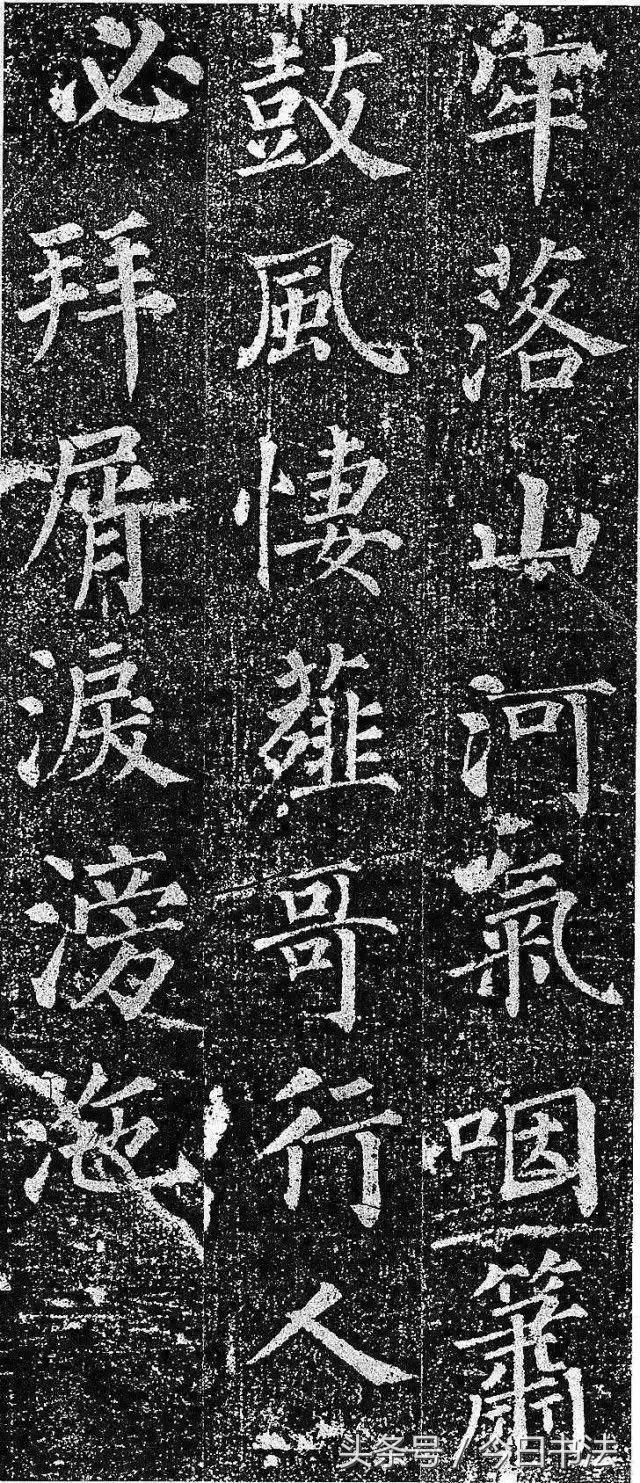 牢落山河氣咽簫
鼓風悽薤哥行人
必拜屑淚滂沲
头条号 / 今日书法